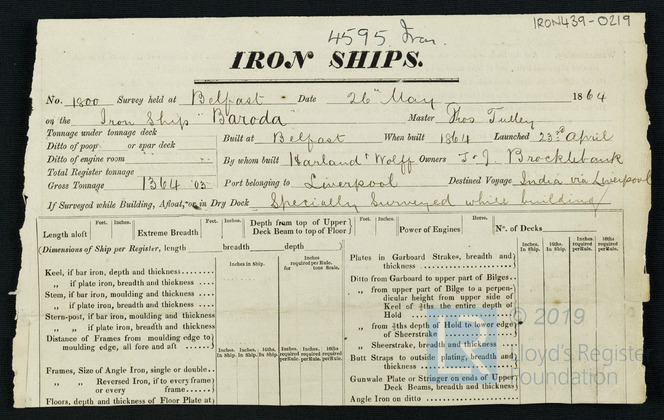 IRON439-0219
4595 Iron
IRON SHIPS.
No. 1800 Survey held at Belfast Date 26th May 1864
on the Iron Ship "Baroda" Master Thos Tulley
Tonnage under tonnage deck
Ditto of poop or spar deck
Ditto of engine room
Total Register tonnage
Gross Tonnage 1364.03
Built at Belfast When built 1864 Launched 23rd April
By whom built Harland & Wolff Owners T & J. Brocklebank
Port belonging to Liverpool Destined Voyage India via Liverpool
If Surveyed while Building, Afloat, or in Dry Dock Specially Surveyed while building
Length aloft Feet. Inches. Extreme Breadth Feet. Inches. Depth from top of Upper Deck Beam to top of Floor Feet. Inches. Power of Engines Horse. No. of Decks
(Dimensions of Ship per Register, length breadth depth )
Inches in Ship. Inches required per Rule. for tons Scale.
Keel, if bar iron, depth and thickness
„ if plate iron, breadth and thickness
Stem, if bar iron, moulding and thickness
„ if plate iron, breadth and thickness
Stern-post, if bar iron, moulding and thickness
„ „ if plate iron, breadth and thickness
Distance of Frames from moulding edge to
moulding edge, all fore and aft
Inches In Ship. 16ths In Ship. Inches required per Rule. 16ths required per Rule.
Frames, Size of Angle Iron, single or double
„ „ Reversed Iron, if to every frame
or every frame
Floors, depth and thickness of Floor Plate at
Inches In Ship. 16ths In Ship. Inches required per Rule. 16ths required per Rule.
Plates in Garboard Strakes, breadth and
thickness
Ditto from Garboard to upper part of Bilges
„ from upper part of Bilge to a perpen-
dicular height from upper side of
Keel of ths the entire depth of
Hold
„ from ths depth of Hold to lower edge
of Sheerstrake
„ Sheerstrake, breadth and thickness
Butt Straps to outside plating, breadth and
thickness
Gunwale Plate or Stringer on ends of Upper
Deck Beams, breadth and thickness
Angle Iron on ditto
© 2019
Lloyd's Register
Foundation